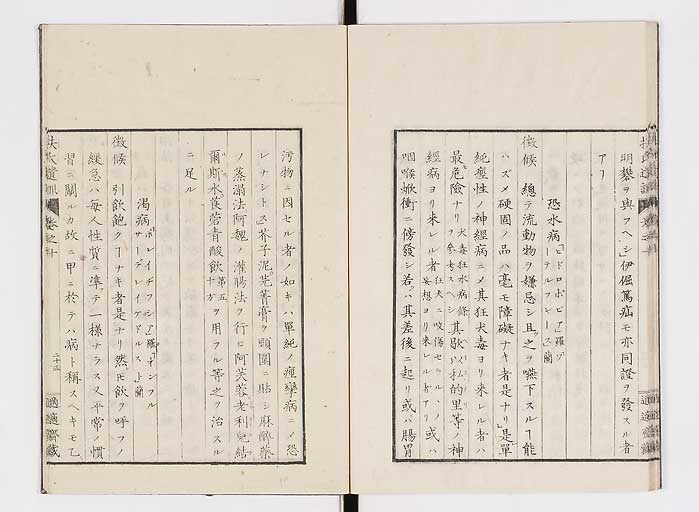 明礬ヲ與フヘシ」伊倔篤疝モ亦同證ヲ發スル者
アリ
恐水病「ヒドロポビア」羅
徴候 總テ流動物ヲ嫌忌シ且之ヲ嚥下スルヿ能
ハズメ硬固ノ品ハ毫モ障礙ナキ者是ナリ」是單
純痙性ノ神經病ニメ其狂犬毒ヨリ來レル者ハ
最危險ナリ 犬毒狂水病條ヲ參考スヘシ 其歇以私的里等ノ神
經病ヨリ來レル者 狂犬ニ咬傷セラル、ノ妄想ヨリ來レル者アリ 或ハ
咽喉焮衝ニ傍發シ若クハ其差後ニ起リ或ハ腸胃
汚物ニ因セル者ノ如キハ單純ノ痙攣病ニメ恐
レナシトス芥子泥芫菁膏ヲ頸圍ニ貼シ麻醉藥
ノ蒸溻法阿魏ノ灌腸法ヲ行ヒ阿芙蓉老利兒結
爾斯水莨菪青酸飮 第五十方 ヲ用ウル等之ヲ治スル
ニ足ル
渇病
徴候 引飮飽クヿナキ者是ナリ然ヒ飮ヲ呼フノ
緩急ハ毎人性質ニ準テ一樣ナラス又平常ノ慣
習ニ關ルカ故ニ甲ニ於テハ病ト稱スヘキモ乙
二十三
適適齋藏